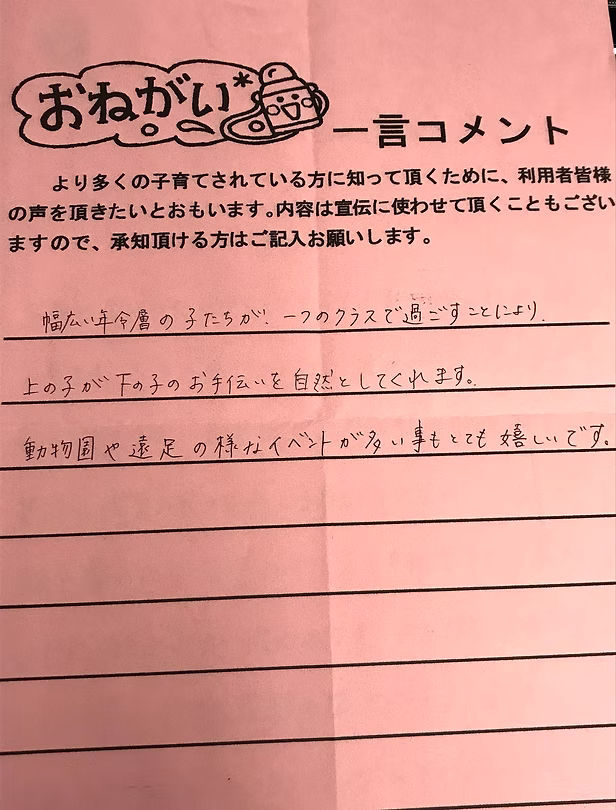 おねがい*
一言コメント
より多くの子育てされている方に知って頂くために、利用者皆様
の声を頂きたいとおもいます。内容は宣伝に使わせて頂くこともござい
ますので、承知頂ける方はご記入お願いします。
幅広い年令層の子たちが、一つのクラスで過ごすことにより、
上の子が下の子のお手伝いを自然としてくれます。
動物園や遠足の様なイベントが多い事もとても嬉しいです。